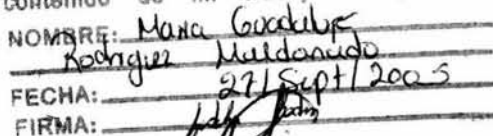 NOMBRE: Maria Guadalupe
Rodriguez Maldonado
FECHA: 27/Sept/2005
FIRMA: